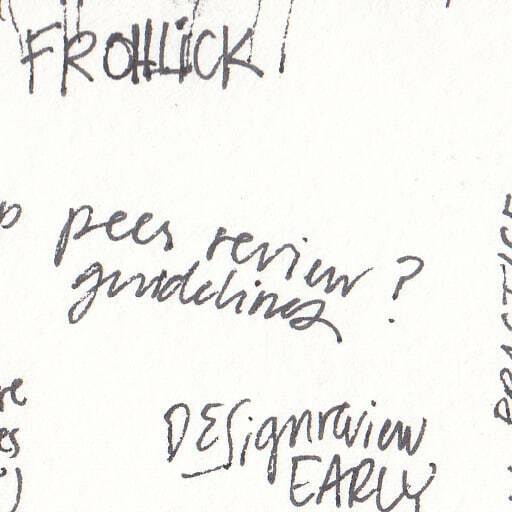 FROHLICK
peer review ?
guidelines
DESignreview
EARLY
PRACTICE